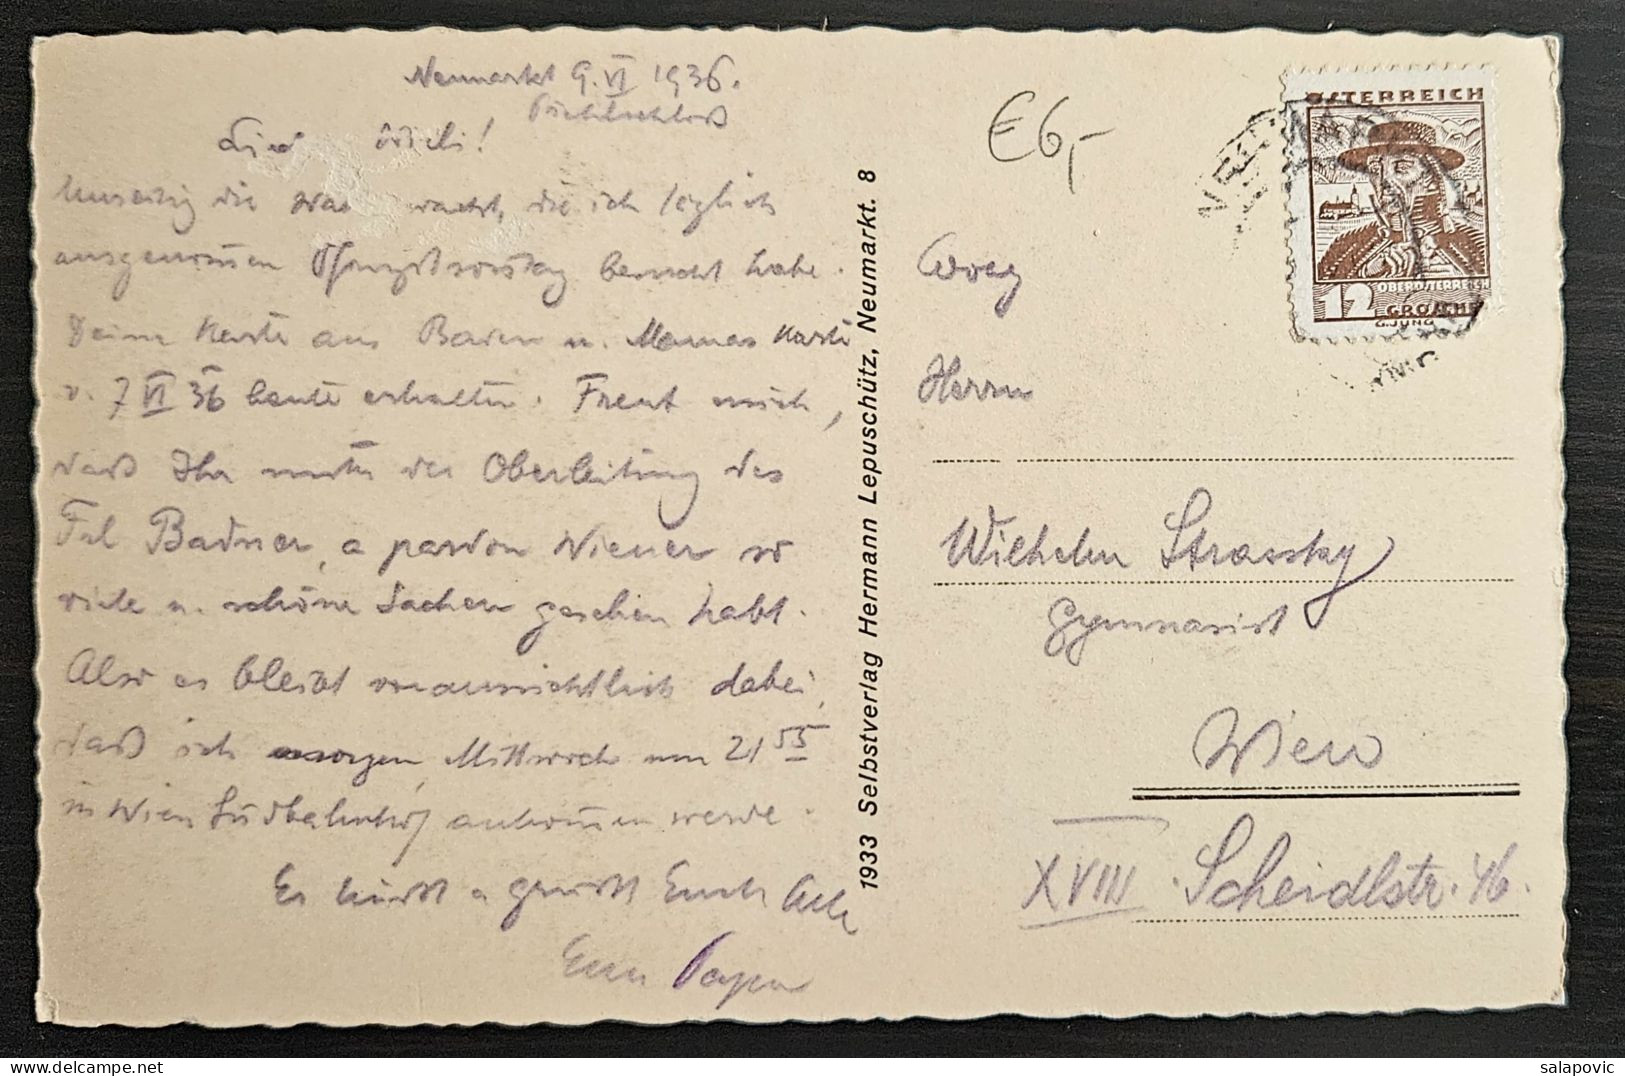 Neumarkt 9.VI 1936.
Pichlschloß
€6,-
ÖSTERREICH
12
OBERÖSTERREICH
GROSCHEN
G.JUNG
!
Umseitig die die ich leztlich
ausgenommen Pfingstsonntag besucht habe.
Deine Karte aus Baden u. Mamas Karte
v. 7 VI 36 heute erhalten. Freut mich,
daß Ihr unter der Oberleitung des
Frl Badner, a pardon Wiener so
viele u. schöne Sachen gesehen habt.
Also es bleibt voraussichtlich dabei,
daß ich morgen, Mittwoch um 21 55
in Wien Südbahnhof ankommen werde.
Es küsst u grüsst Euch Alle
Euer Papa
1933 Selbstverlag Hermann Lepuschütz, Neumarkt. 8
Herrn
Wilhelm Strassky
Gymnasist
Wien
XVIII Scheidlstr. 46.
salapovic